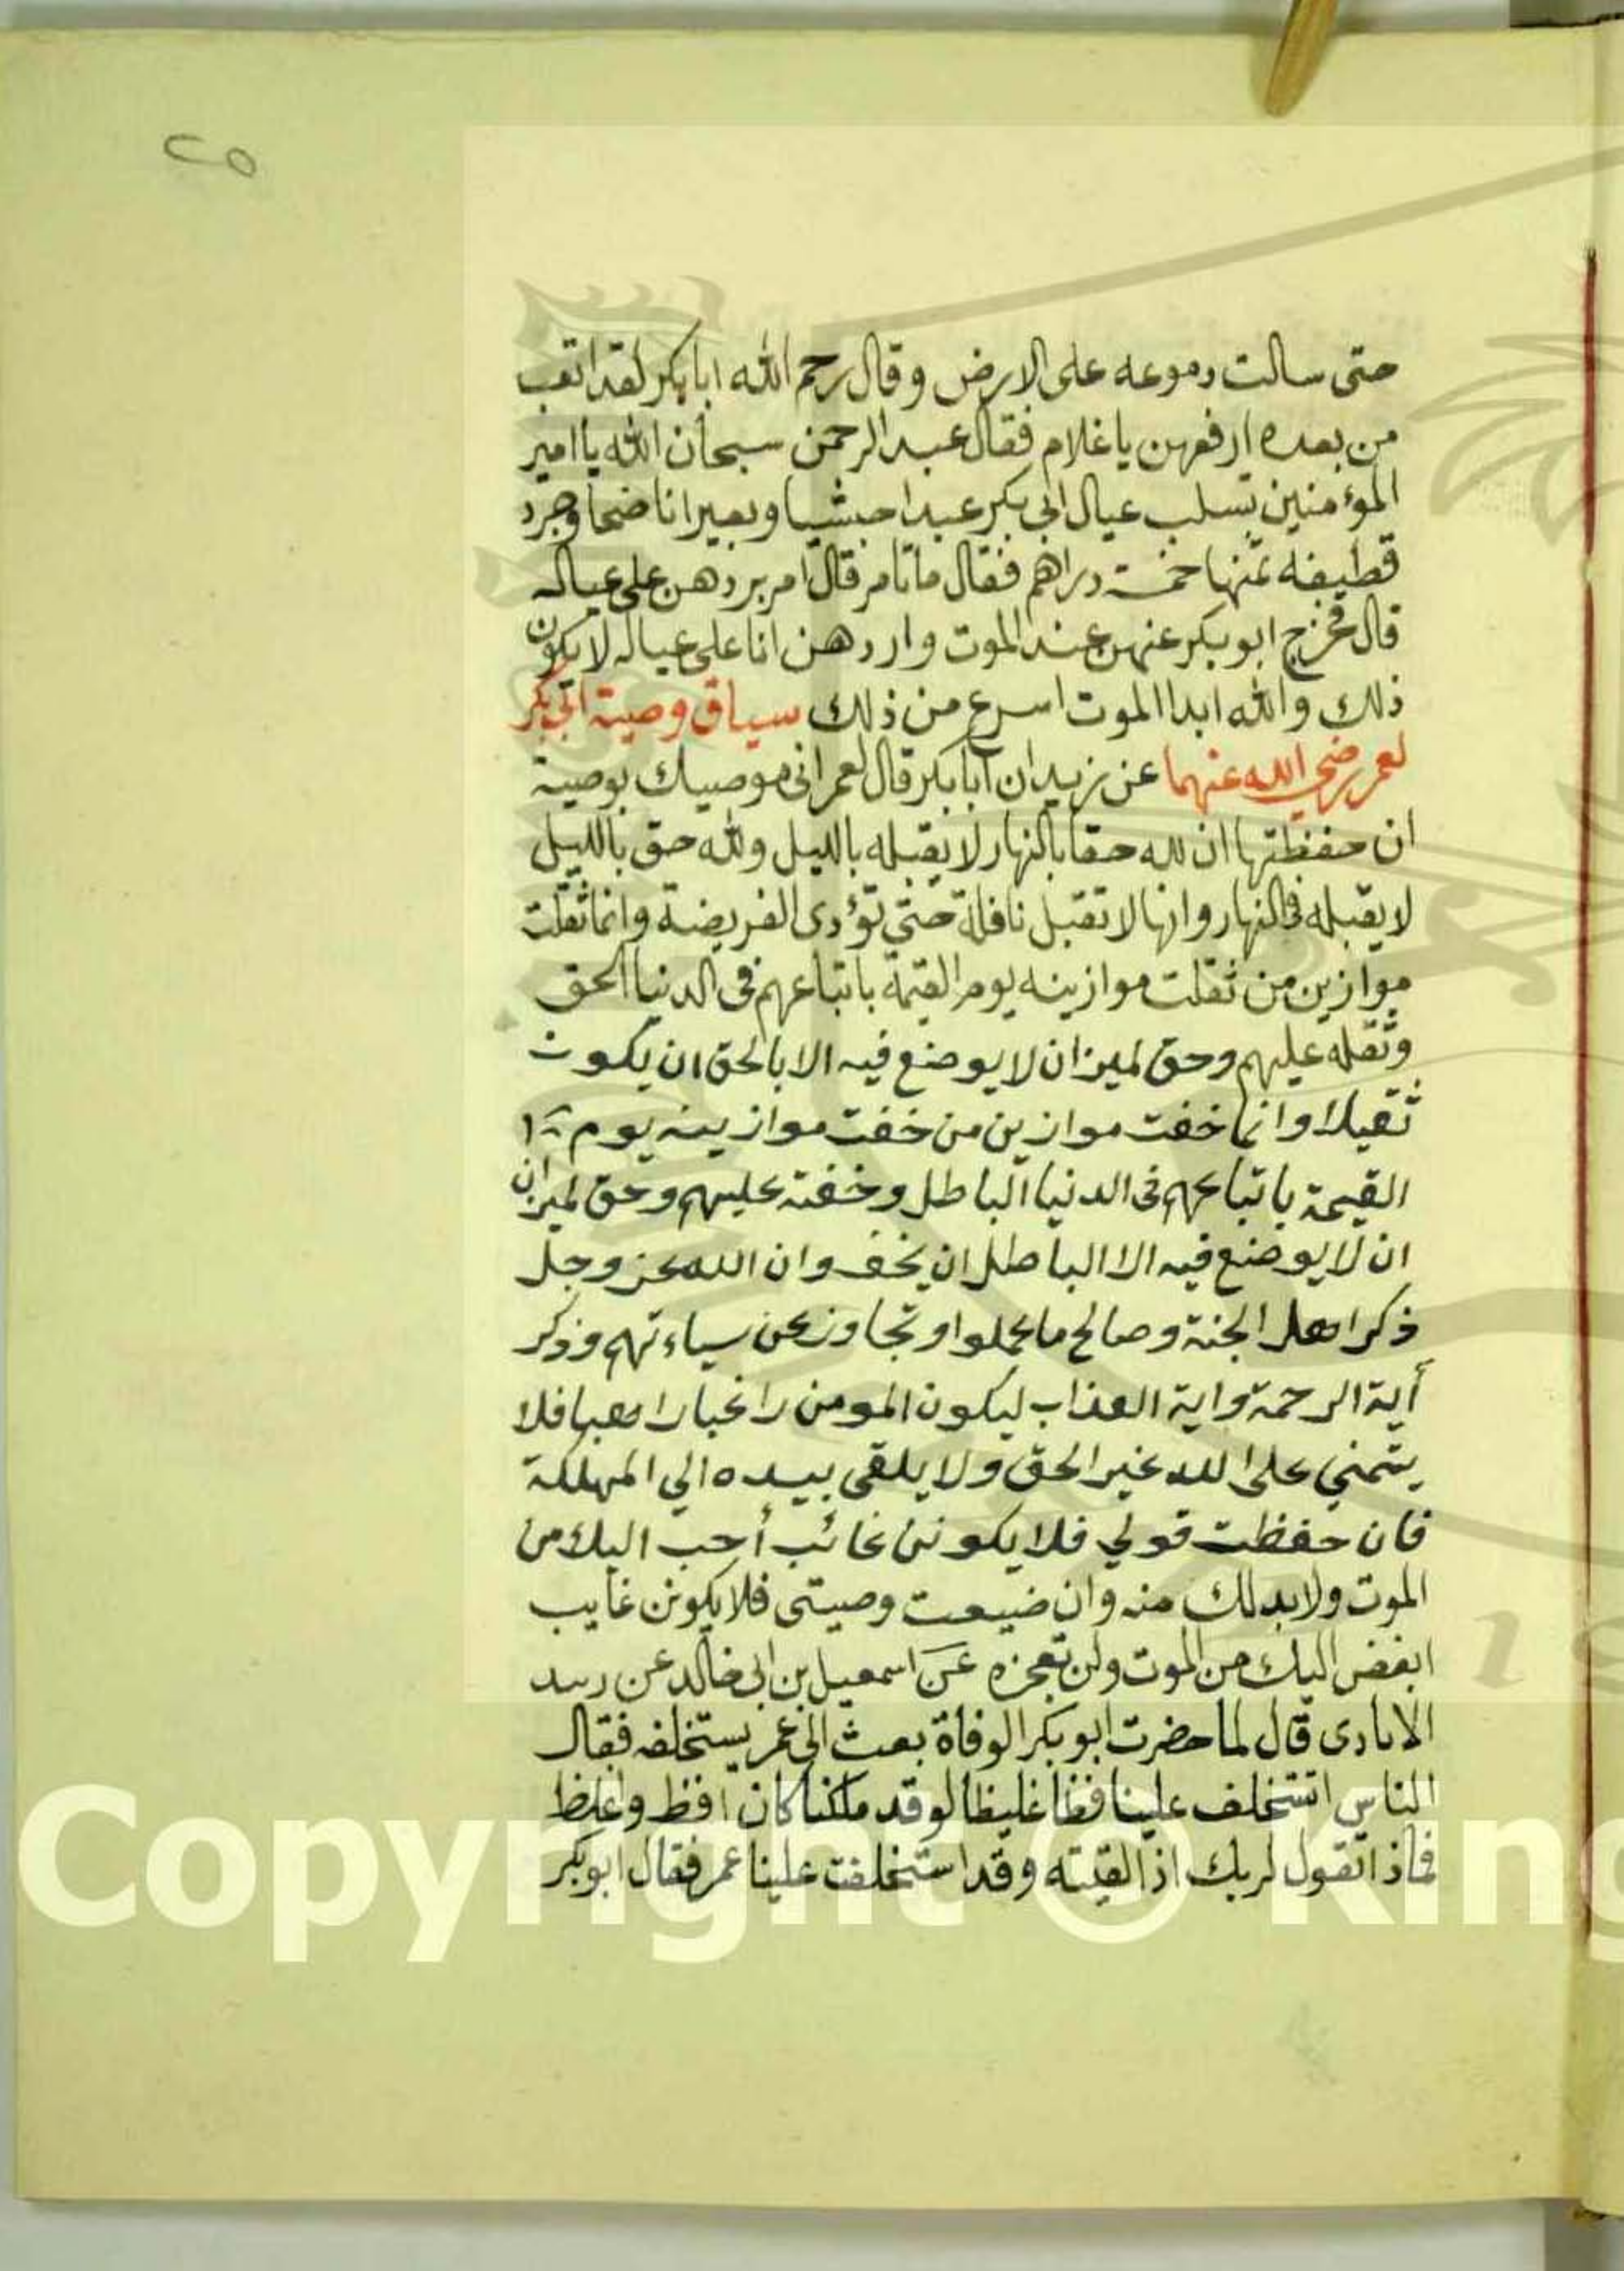 ٢٥
حتى سالت دموعه على الارض وقال رحم الله ابا بكر لقد اتعب
من بعده ارفعهن يا غلام فقال عبد الرحمن سبحان الله يا امير
المؤمنين تسلب عيال ابي بكر عبدا حبشيا وبعيرا ناضحا وجرد
قطيفه ثمنها خمسة دراهم فقال ما تامر قال امر بردهن على عياله
قال فخرج ابو بكر عنهن عند الموت واردهن انا على عياله لا يكون
ذلك والله ابدا الموت اسرع من ذلك سياق وصية ابي بكر
لعمر رضي الله عنهما عن زبيد ان ابا بكر قال لعمر اني موصيك بوصية
ان حفظتها ان لله حقا بالنهار لا يقبله بالليل ولله حق بالليل
لا يقبله في النهار وانها لا تقبل نافلة حتى تؤدى الفريضة وانما ثقلت
موازين من ثقلت موازينه يوم القيمة باتباعهم في الدنيا الحق
وثقله عليهم وحق لميزان لا يوضع فيه الا بالحق ان يكون
ثقيلا وانما خفت موازين من خفت موازينه يوم
القيمة باتباعهم في الدنيا الباطل وخفته عليهم وحق لميزان
ان لا يوضع فيه الا الباطل ان يخف وان الله عز وجل
ذكر اهل الجنة وصالح ما عملوا وتجاوز عن سياءتهم وذكر
أية الرحمة واية العذاب ليكون المومن راغبا راهبا فلا
يتمني على الله غير الحق ولا يلقى بيده الي المهلكة
فان حفظت قولي فلا يكونن غائب أحب اليك من
الموت ولا بد لك منه وان ضيعت وصيتى فلا يكونن غايب
ابغض اليك من الموت ولن تعجزه عن اسمعيل بن ابي خالد عن
قال لما حضرت ابو بكر الوفاة بعث الى عمر يستخلفه فقال
الناس اتستخلف علينا فظا غليظا لو قد ملكنا كان افظ واغلظ
فماذا تقول لربك اذا لقيته وقد استخلفت علينا عمر فقال ابو بكر
Copyright © King